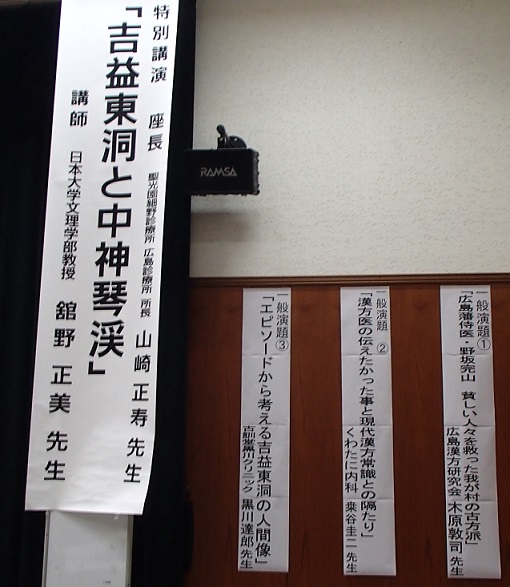 特別講演 座長 聖光園細野診療所 広島診療所 所長 山崎 正寿 先生
「吉益東洞と中神琴渓」
講師 日本大学文理学部教授 舘野 正美 先生
RAMSA
一般演題①
「広島藩侍医・野坂完山 貧しい人々を救った我が村の古方派」
広島漢方研究会 木原敦司 先生
一般演題②
「漢方医の伝えたかった事と現代漢方常識との隔たり」
くわたに内科 桒谷圭二 先生
一般演題③
「エピソードから考える吉益東洞の人間像」
吉訓堂黒川クリニック 黒川達郎 先生